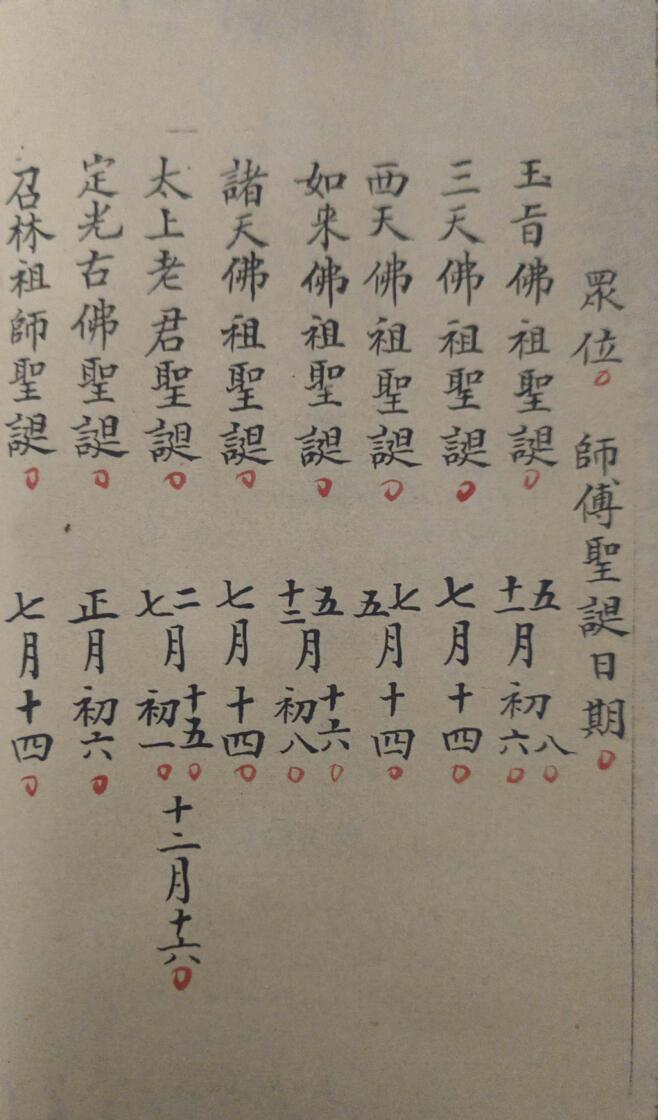 眾位。師傅聖誕日期。
玉旨佛祖聖誕。 五十一月初八初六。。
三天佛祖聖誕。 七月十四。
西天佛祖聖誕。 七五月十四。
如來佛祖聖誕。 五十二月十六初八。。
諸天佛祖聖誕。 七月十四。
太上老君聖誕。 二七月十五初一。。十二月十六。
定光古佛聖誕。 正月初六。
召林祖師聖誕。 七月十四。